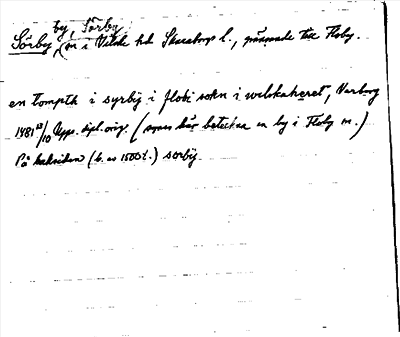 by, Sörby
Sörby, (n i Vilske hd Skaraborgs l., gränsade till Floby.
en tompth i syrbij i flobi sokn i wilskaheret, Warborg
1481 13/10 Upps. dipl. orig. (synes här beteckna en by i Floby sn.)
På baksidan (b. av 1500 t.) sörbij